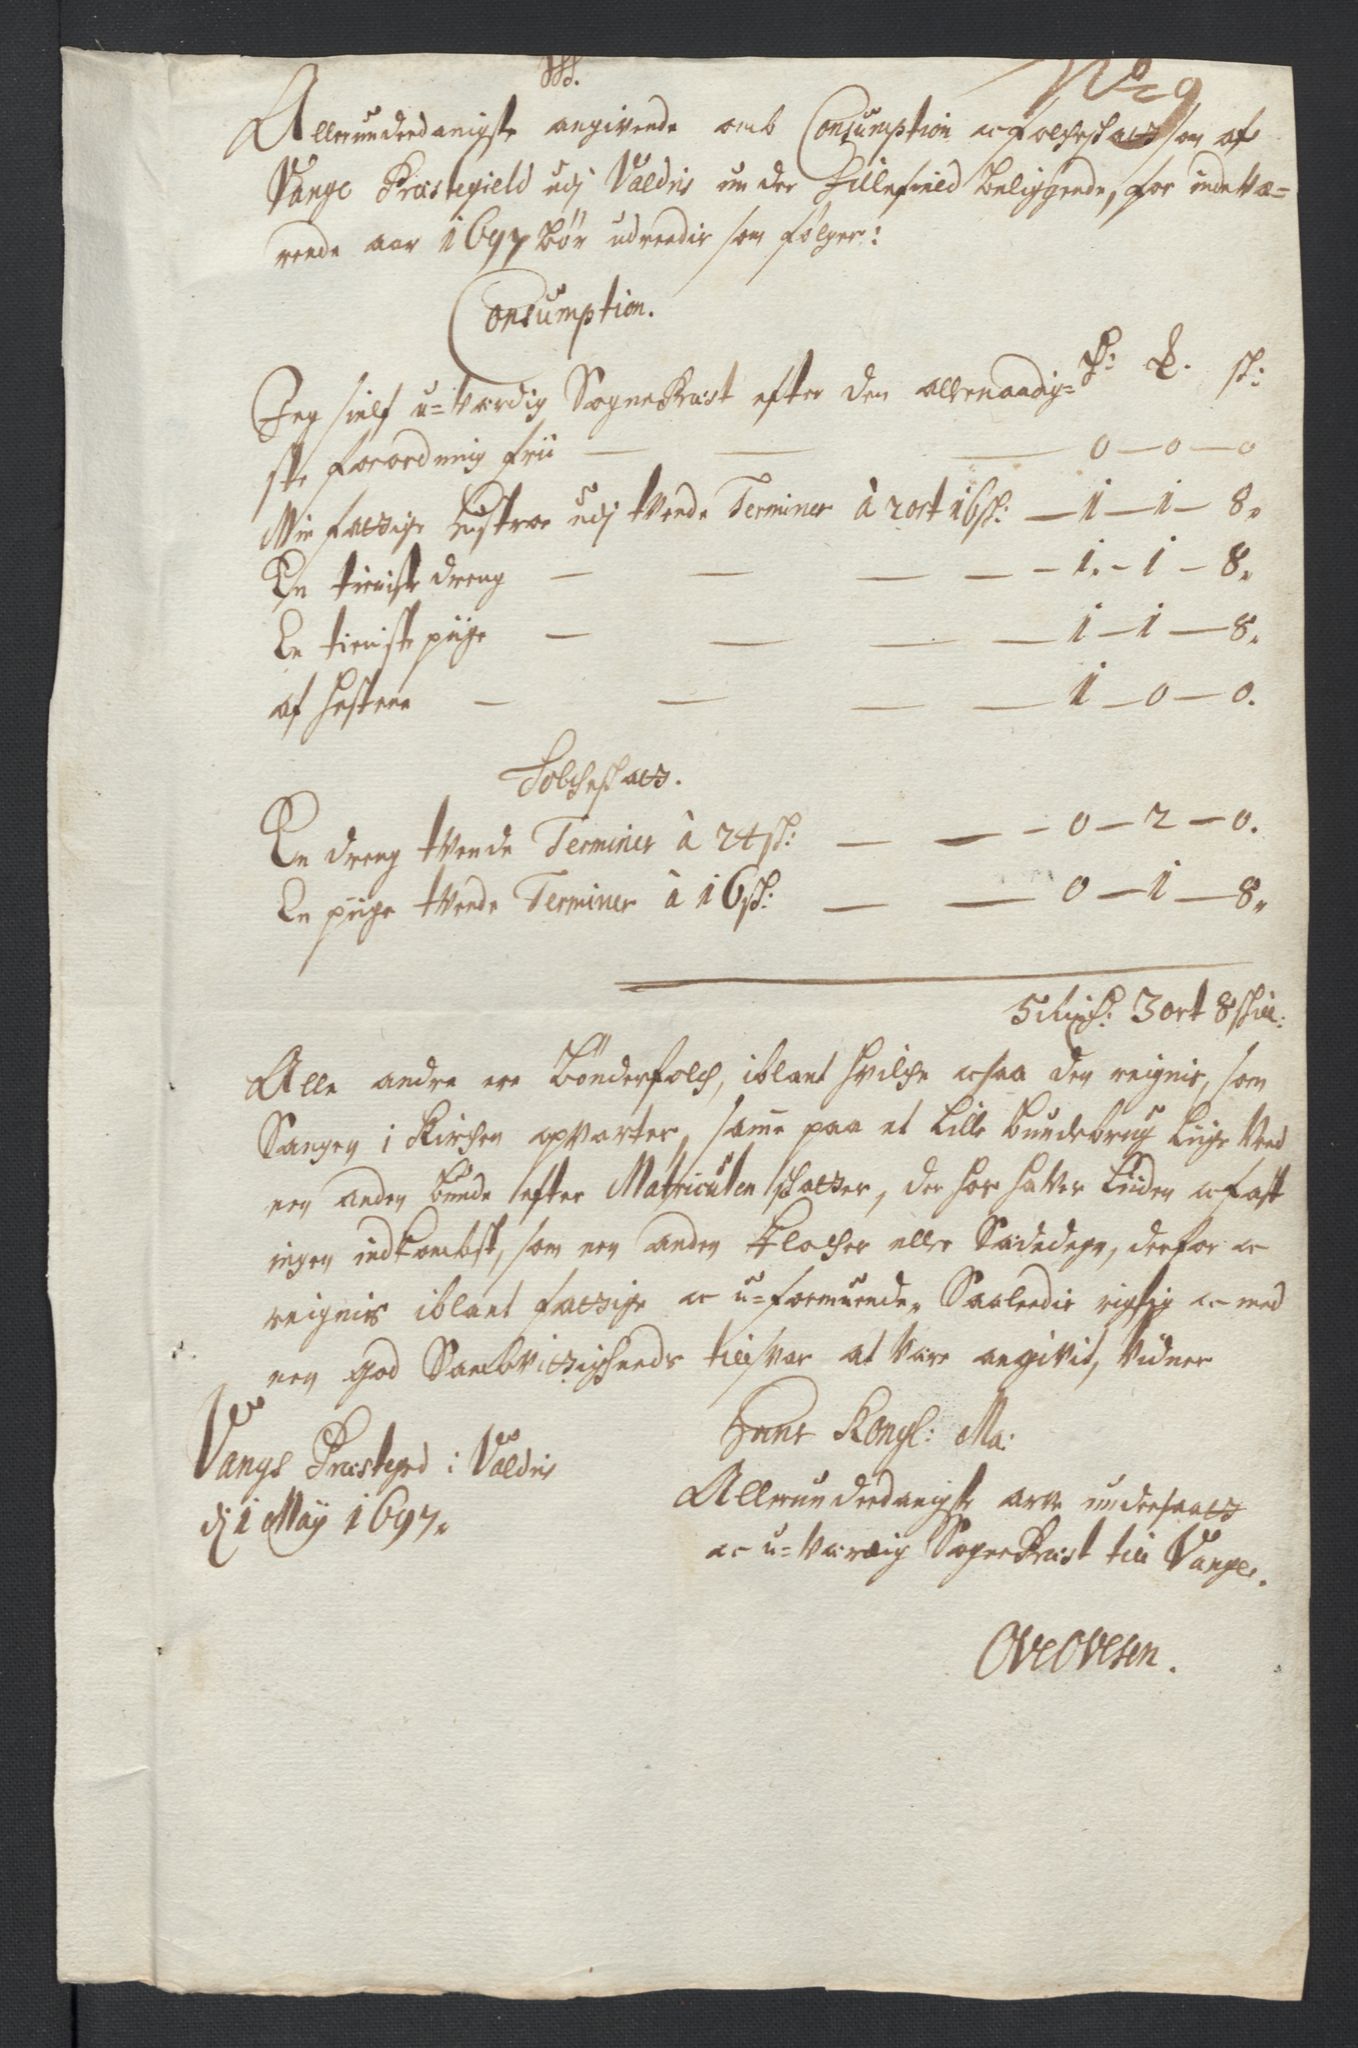 No 9
Allerunderdanigste angivende omb Consumption oc folcheskatz som af
Vangs Præstegield udj Valdris under Fillefield beliggende, for indevæ=
rende aar 1697 bør udreedis som følger:
Consumption.
Jeg sielf u=værdig Sogne Præst efter den allernaadig=
ste forordning frii — — — 0 — 0 — 0
Min fattige Hustroe udj tvende Terminer à 2 ort 16 sk: — 1 — 1 — 8.
En tieniste dreng — — — — 1. - 1 — 8.
En tieniste piige — — — — 1 — 1 — 8.
af hestene — — — — 1 — 0 — 0.
Folcheskatz.
En dreng tvende Terminer à 24 sk: — — 0 — 2 — 0.
En piige tvende Terminer à 16 sk: — — 0 — 1 — 8.
5 Rixd: 3 ort 8 skill:
Alle andre ere Bønderfolch, iblant hvilche ochsaa den reignis, som
Sangen i Kirchen opvarter, samme paa et lille bundebrug liige ved
een anden bunde efter Matriculen skatzer, der hos haver liiden oc fast
ingen indkombst, som een anden Klocher eller Sædedegn, derfor oc
reignis iblant fattige oc u=formuende. Saaledis rigtig oc med
een god Sambvitzigheeds tilsvar at være angivit, vidner
Vangs Præstegrd i Valdris
dj 1 Maij 1697.
Hans Kongl: Ma:
Allerunderdanigste arve undersaatz
oc u=værdig Sogne Præst till Vangs.
Ove Ovesen.